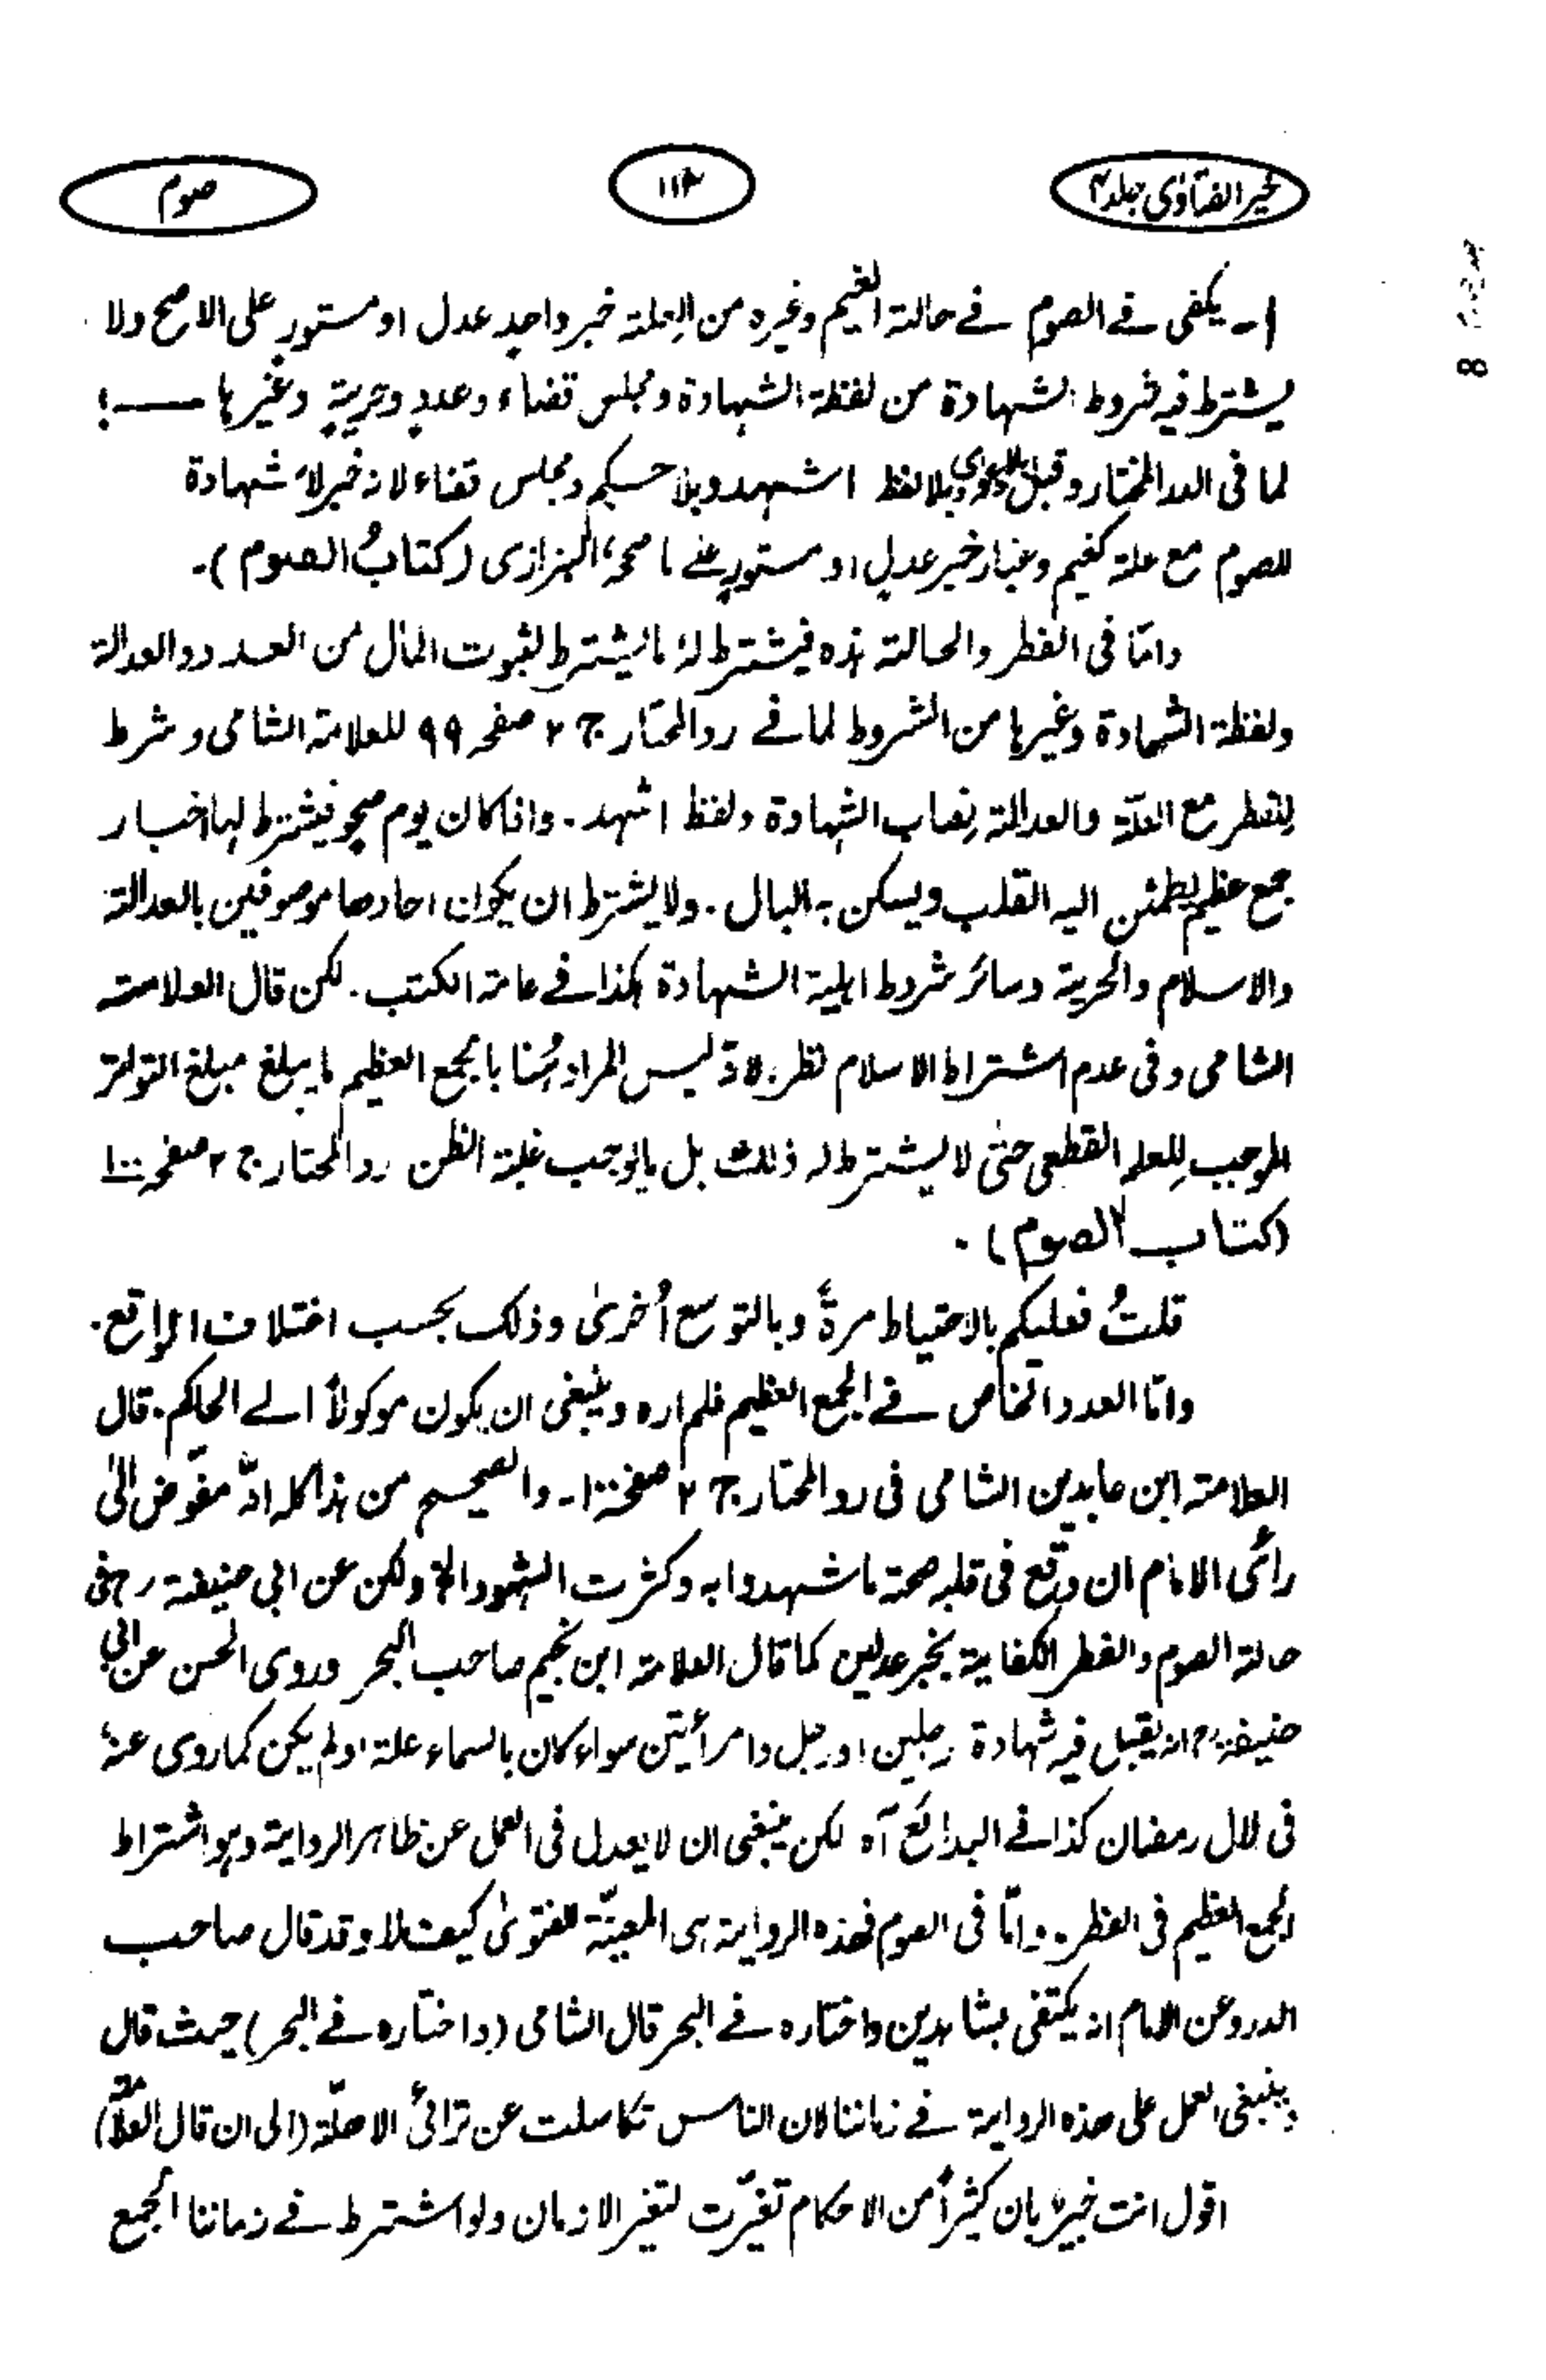 خیر الفتاوٰی جلد ۴
۱۱۲
صوم
۱۔ یکفی فے الصوم فے حالۃ الغیم وغیرہ من العلۃ خبر واحد عدل او مستور علی الاصح ولا
یشترط فیہ شروط الشہادۃ من لفظۃ الشہادۃ ومجلس قضاء وعدد وحریۃ وغیرہا ——؛
لما فی الدر المختار وقبل بلا دعوی وبلا لفظ اشہد وبلا حکم ومجلس قضاء لانہ خبر لا شہادۃ
للصوم مع علۃ کغیم وغبار خبر عدل او مستور علے ما صححہ البزازی (کتابُ الصوم)۔
وامّا فی الفطر والحالۃ ہذہ فیشترط لہٗ ما یشترط لثبوت المال من العدد والعدالۃ
ولفظۃ الشہادۃ وغیرہا من الشروط لما فے ردالمحتار ج ۲ صفحہ ۹۹ للعلامۃ الشامی وشرط
للفطر مع العلّۃ والعدالۃ نصاب الشہادۃ ولفظ اشہد۔ واذا کان یوم صحو فیشترط لہا اخبار
جمع عظیم یطمئن الیہ القلب ویسکن بہ البال۔ ولا یشترط ان یکون احادھا موصوفین بالعدالۃ
والاسلام والحریۃ وسائر شروط اہلیۃ الشہادۃ ہکذا فے عامۃ الکتب۔ لکن قال العلامۃ
الشامی وفی عدم اشتراط الاسلام نظر لانہ لیس المراد ہُنا بالجمع العظیم ما یبلغ مبلغ التواتر
الموجب لِلعلم القطعی حتیٰ لا یشترط لہ ذلک بل ما یوجب غلبۃ الظن ردالمحتار ج ۲ صفحہ ۱۰۰
(کتاب الصوم)۔
قلتُ فعلیکم بالاحتیاط مرۃً وبالتوسع اُخریٰ وذلک بحسب اختلاف المواقع۔
وامّا العدد الخاص فے الجمع العظیم فلم ارہ وینبغی ان یکون موکولاً الے الحاکم۔ قال
العلامۃ ابن عابدین الشامی فی ردالمحتار ج ۲ صفحہ ۱۰۰۔ والصحیح من ہذا کلہ انّہ مفوّض الیٰ
رأی الامام ان وقع فی قلبہ صحۃ ما شہدوا بہ وکثرت الشہود الخ ولکن عن ابی حنیفۃ رح فی
حالۃ الصوم والفطر الکفایۃ بخبر عدلین کما قال العلامۃ ابن نجیم صاحب البحر وروی الحسن عن ابی
حنیفۃ رح انہ یقبل فیہ شہادۃ رجلین او رجل وامرأیتن سواء کان بالسماء علۃ او لم یکن کما روی عنہٗ
فی ہلال رمضان کذا فے البدائع آہ لکن ینبغی ان لا یعدل فی العمل عن ظاہر الروایۃ وہو اشتراط
الجمع العظیم فی الفطر۔ وامّا فی الصوم فھذہ الروایۃ ہی المعینّۃ للفتویٰ کیف لا وقد قال صاحب
الدر وعن الامام انہ یکتفی بشاہدین واختارہ فے البحر قال الشامی (واختارہ فے البحر) حیث قال
وینبغی العمل علی ھذہ الروایۃ فے زماننا لان الناس تکاسلت عن ترائی الاھلّۃ (الی ان قال العلامۃ)
اقول انت خبیرٌ بان کثیراً من الاحکام تغیّرت لتغیر الازمان ولو اشترط فے زماننا الجمع